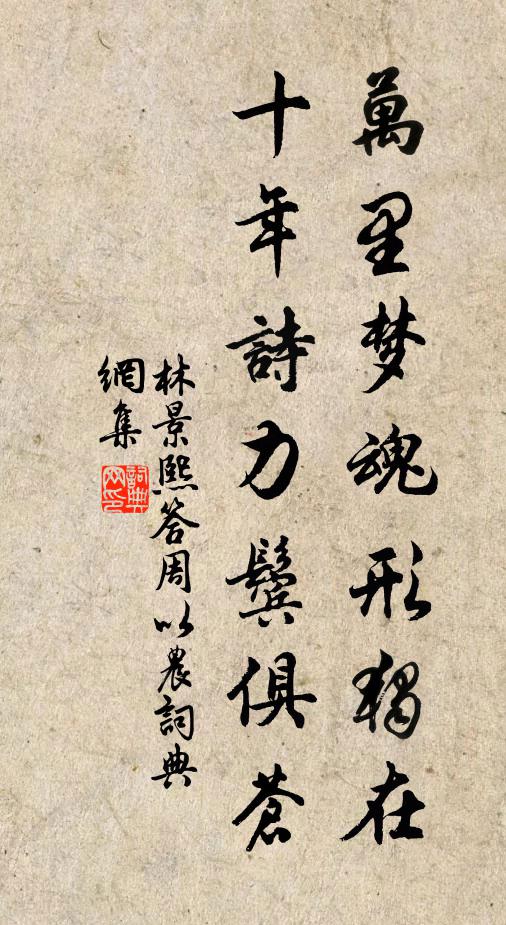 萬里梦魂形獨在
十年詩力鬢俱蒼
林景熙答周以農詞典
網集
詞典網印